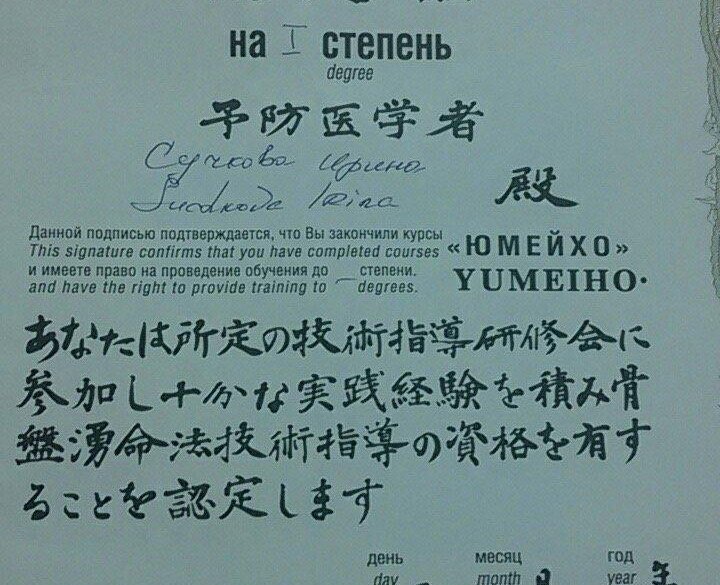 на I степень
degree
予防医学者
Сучкова Ирина
Suchkova Irina
殿
Данной подписью подтверждается, что Вы закончили курсы
This signature confirms that you have completed courses
и имеете право на проведение обучения до — степени.
and have the right to provide training to degrees.
«ЮМЕЙХО»
YUMEIHO·
あなたは所定の技術指導研修会に
参加し十分な実践経験を積み骨
盤湧命法技術指導の資格を有す
ることを認定します
день месяц год
day month 月 year 年